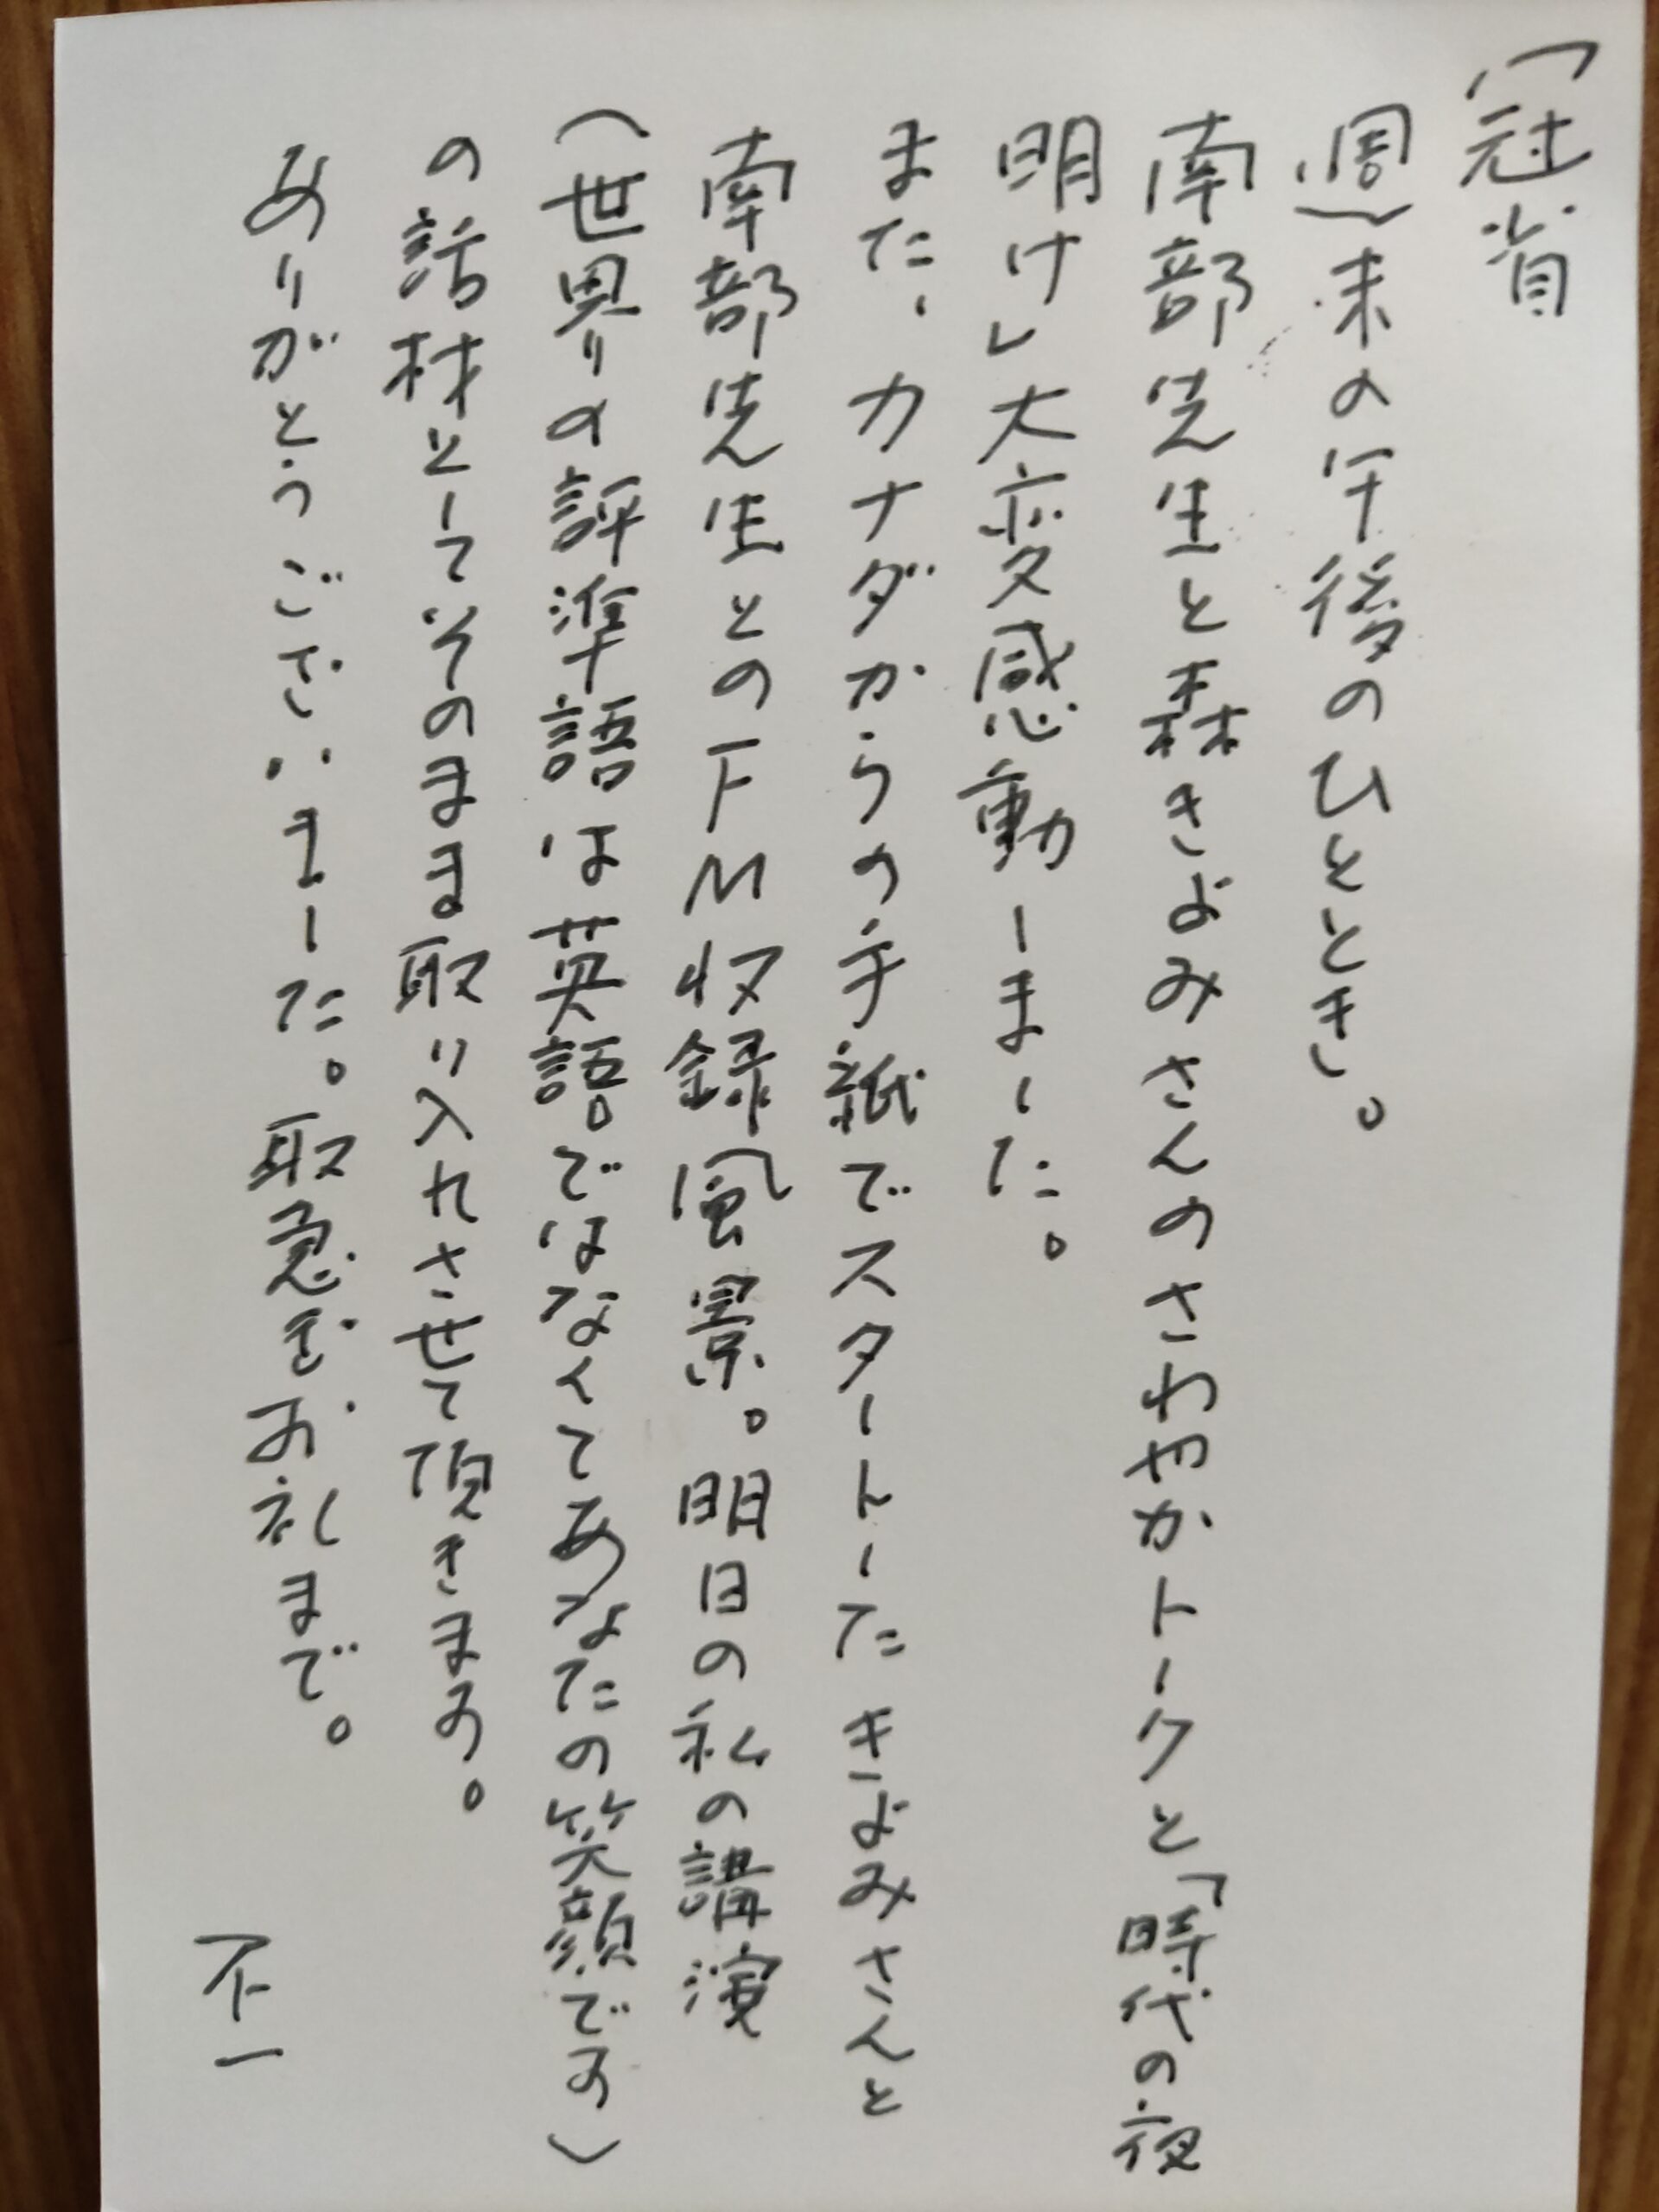 (冠省
週)末の午後のひととき。
南部先生と森きよみさんのさわやかトークと「時代の夜
明け」大変感動しました。
また、カナダからの手紙でスタートしたきよみさんと
南部先生とのFM収録風景。明日の私の講演
(世界の評準語は英語ではなくてあなたの笑顔です)
の話材としてそのまま取り入れさせて頂きます。
ありがとうございました。取急ぎお礼まで。
不一